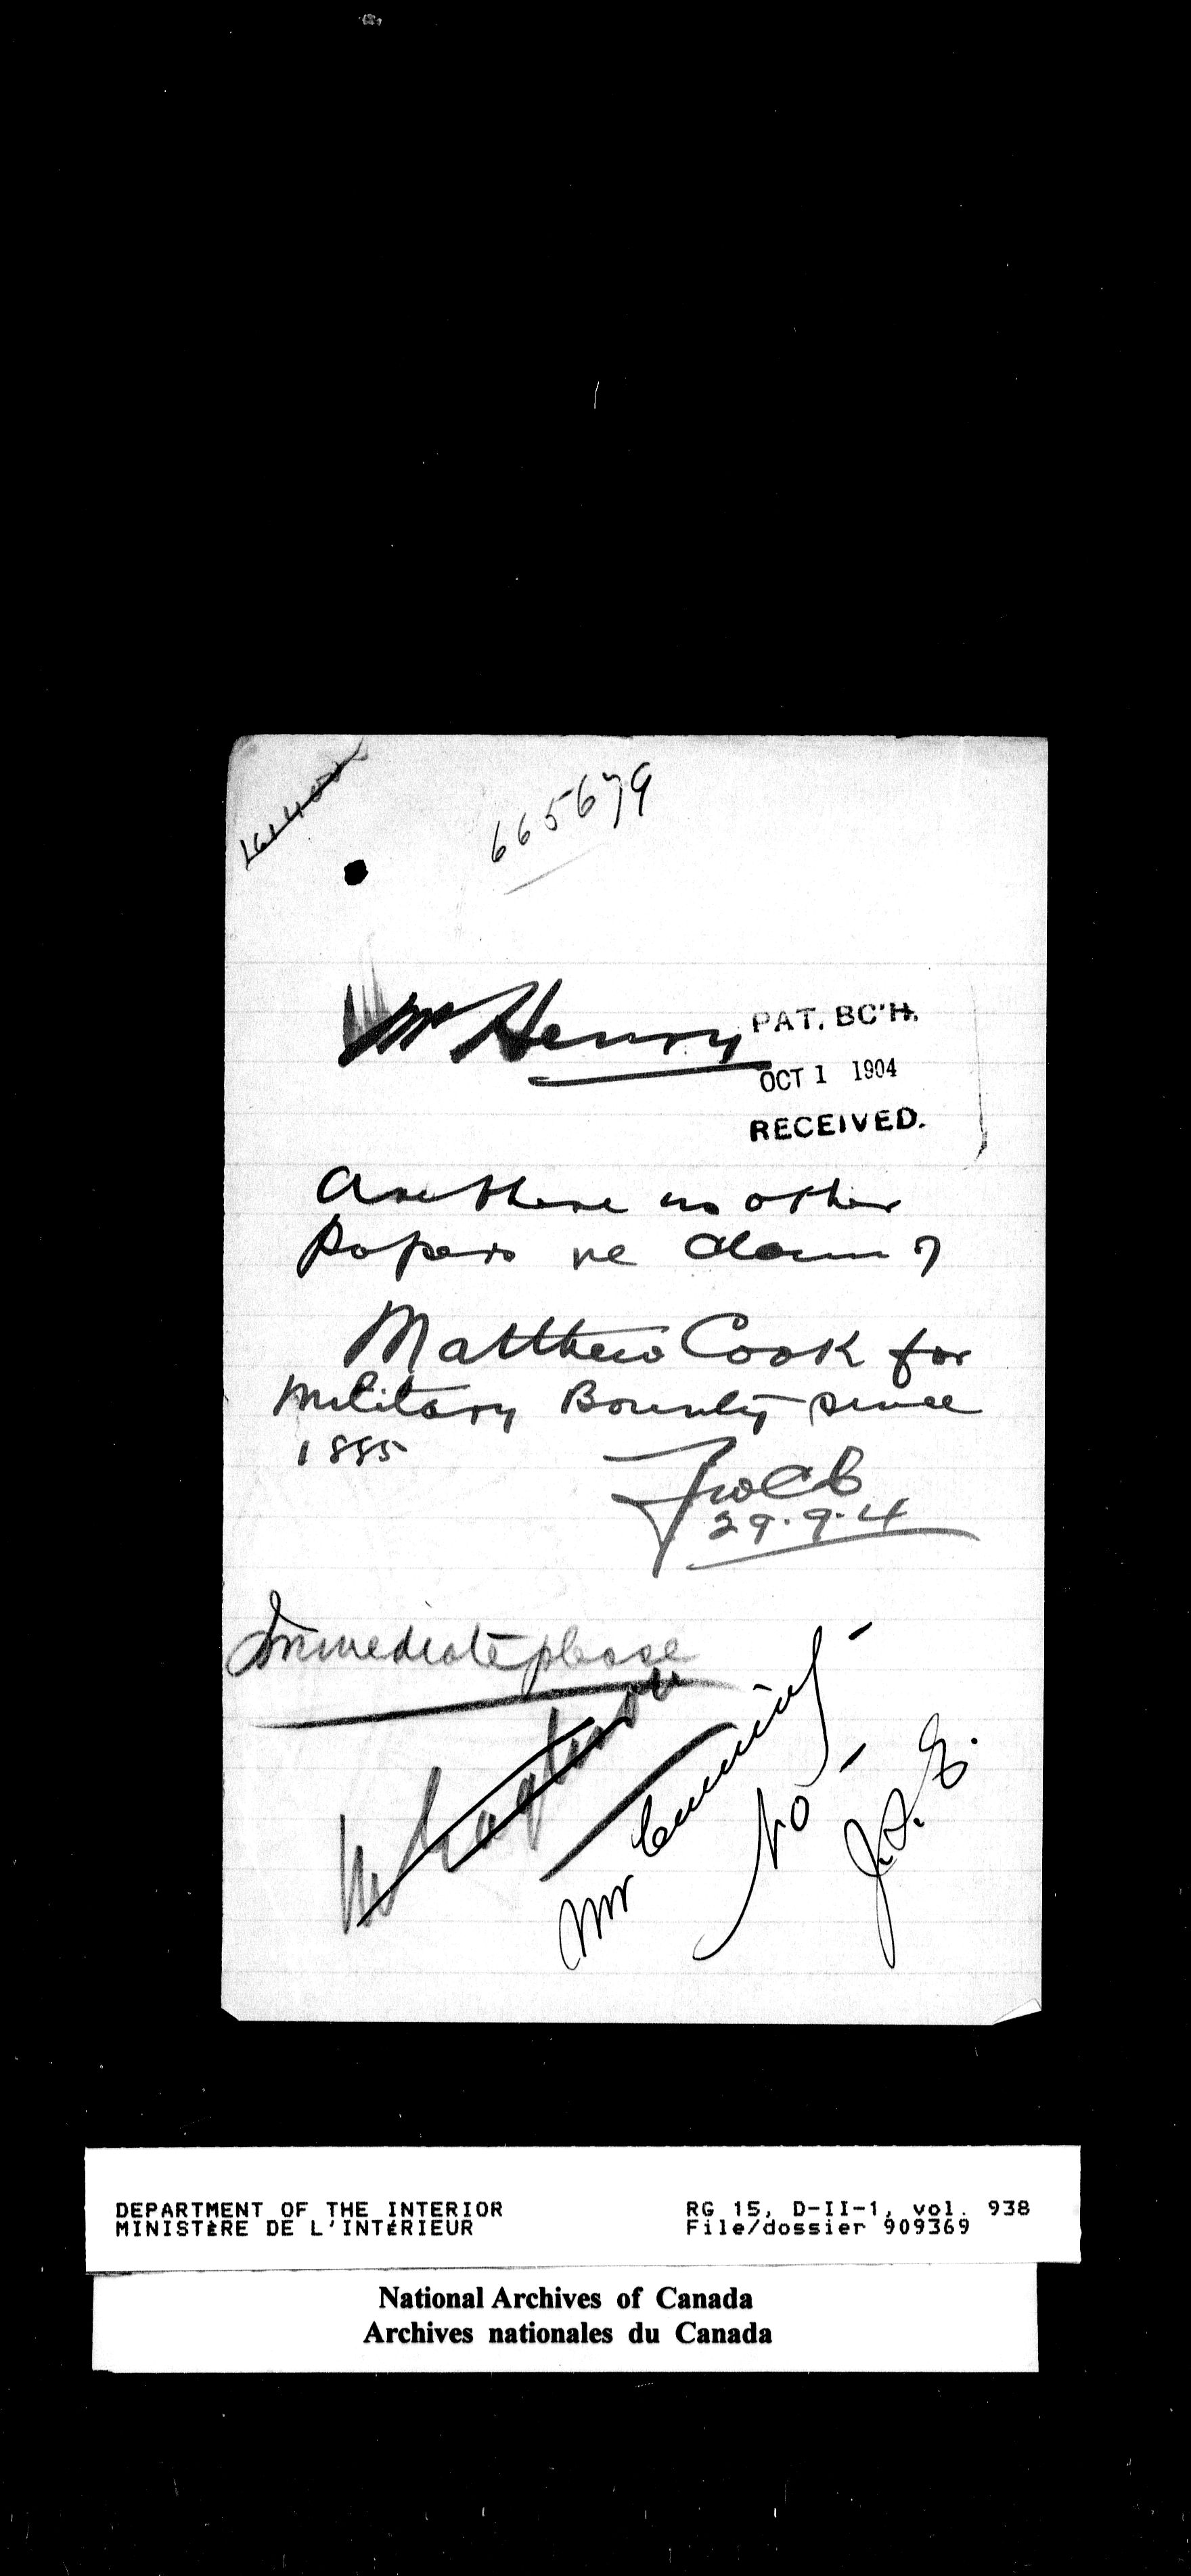 665679
Mr Henry
PAT. BC'H.
OCT 1 1904
RECEIVED.
Are there no other
papers re claim of
Matthew Cook for
Military Bounty since
1885
29.9.4
Immediate please
Mr Cuming
No
DEPARTMENT OF THE INTERIOR
MINISTÈRE DE L'INTÉRIEUR
RG 15, D-II-1, vol. 938
File/dossier 909369
National Archives of Canada
Archives nationales du Canada